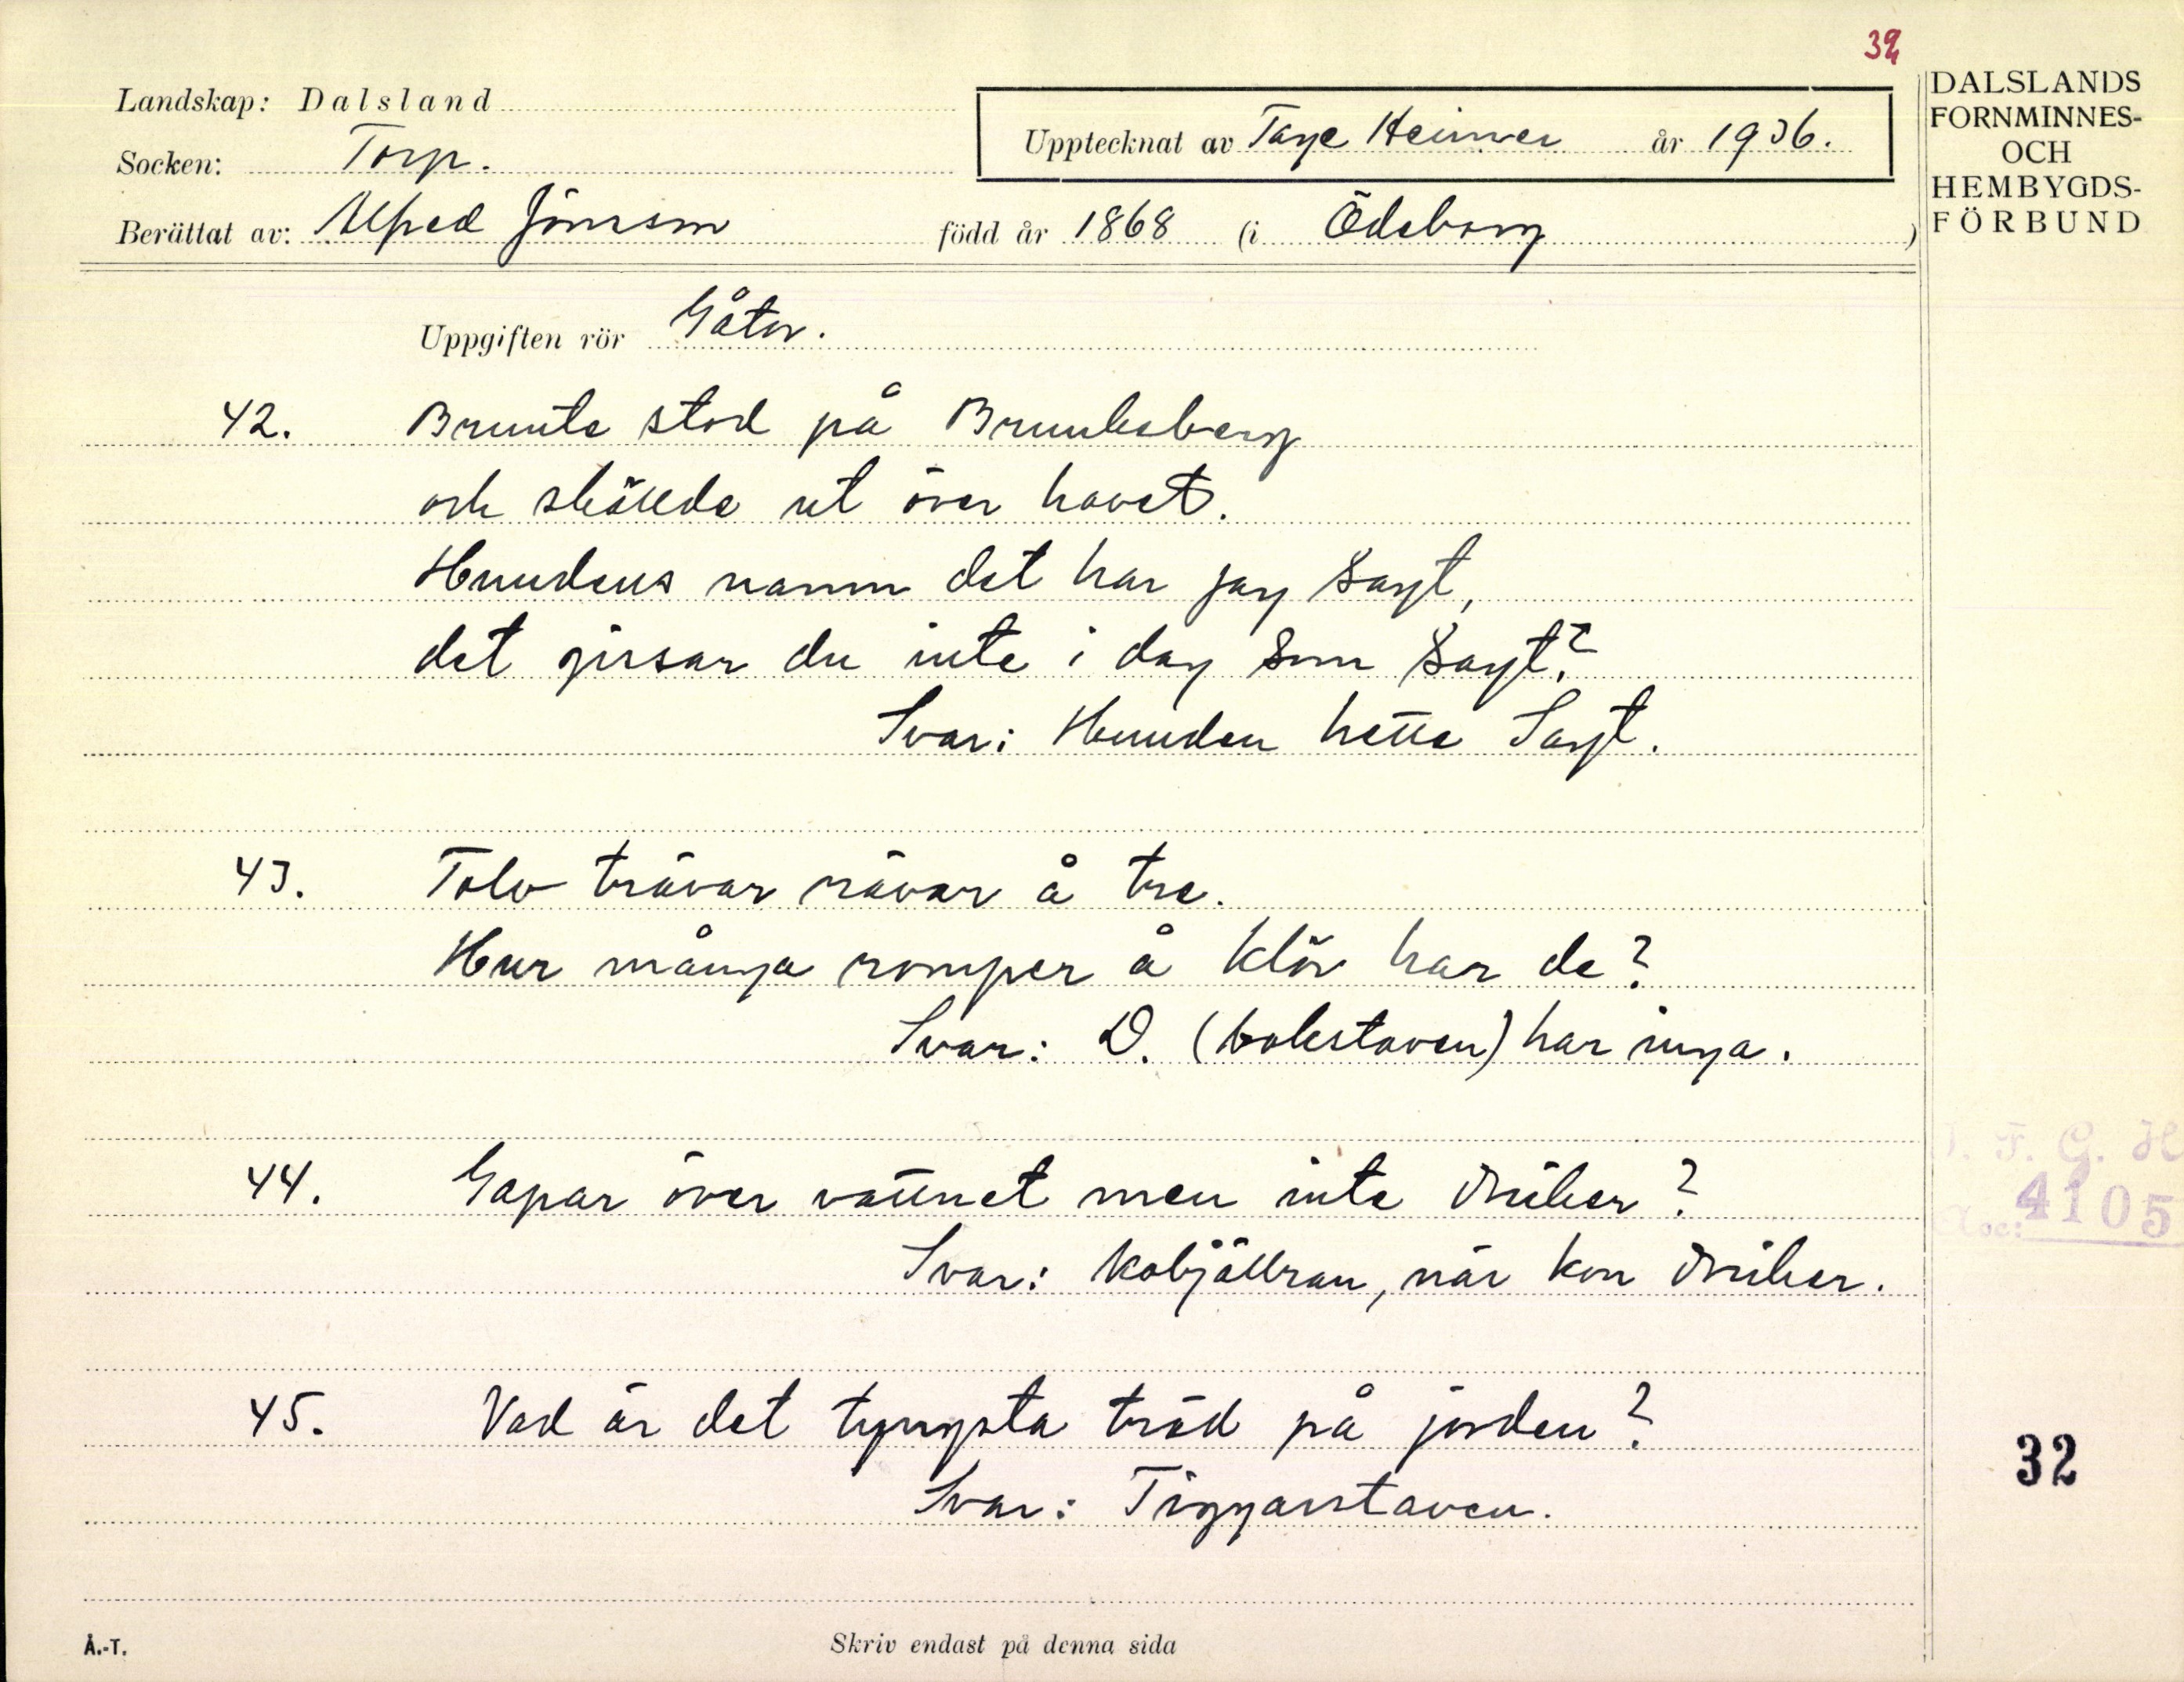 32
DALSLANDS
FORNMINNES-
OCH
HEMBYGDS-
FÖRBUND
Landskap: Dalsland
Upptecknat av Tage Heimer år 1936.
Socken: Torp.
Berättat av: Alfred Jönsson född år 1868 (i Ödeborg)
Uppgiften rör Gåtor.
42. Brunte stod på Brunkeberg
och skådde ut över havet.
Hundens namn det har jag sagt,
det gissar du inte i dag som sagt?
Svar: Hunden hette Sagt.
43. Tolv trävar rävar å tre.
Hur många romper å klör har de?
Svar: D. (bokstaven) har inga.
44. Gapar över vattnet men inte dricker?
Svar: Kobjällran, när kon dricker.
45. Vad är det tyngsta träd på jorden?
Svar: Tiggarstaven.
4105
32
Å.-T.
Skriv endast på denna sida